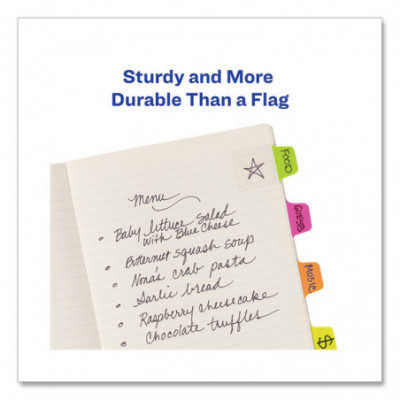 Sturdy and More
Durable Than a Flag
Menu
Baby lettuce Salad
with Blue Cheese
Butternut squash soup
Nona's crab pasta
Garlic bread
Raspberry cheesecake
Chocolate truffles
FOOD
GUESTS
MUSIC
$